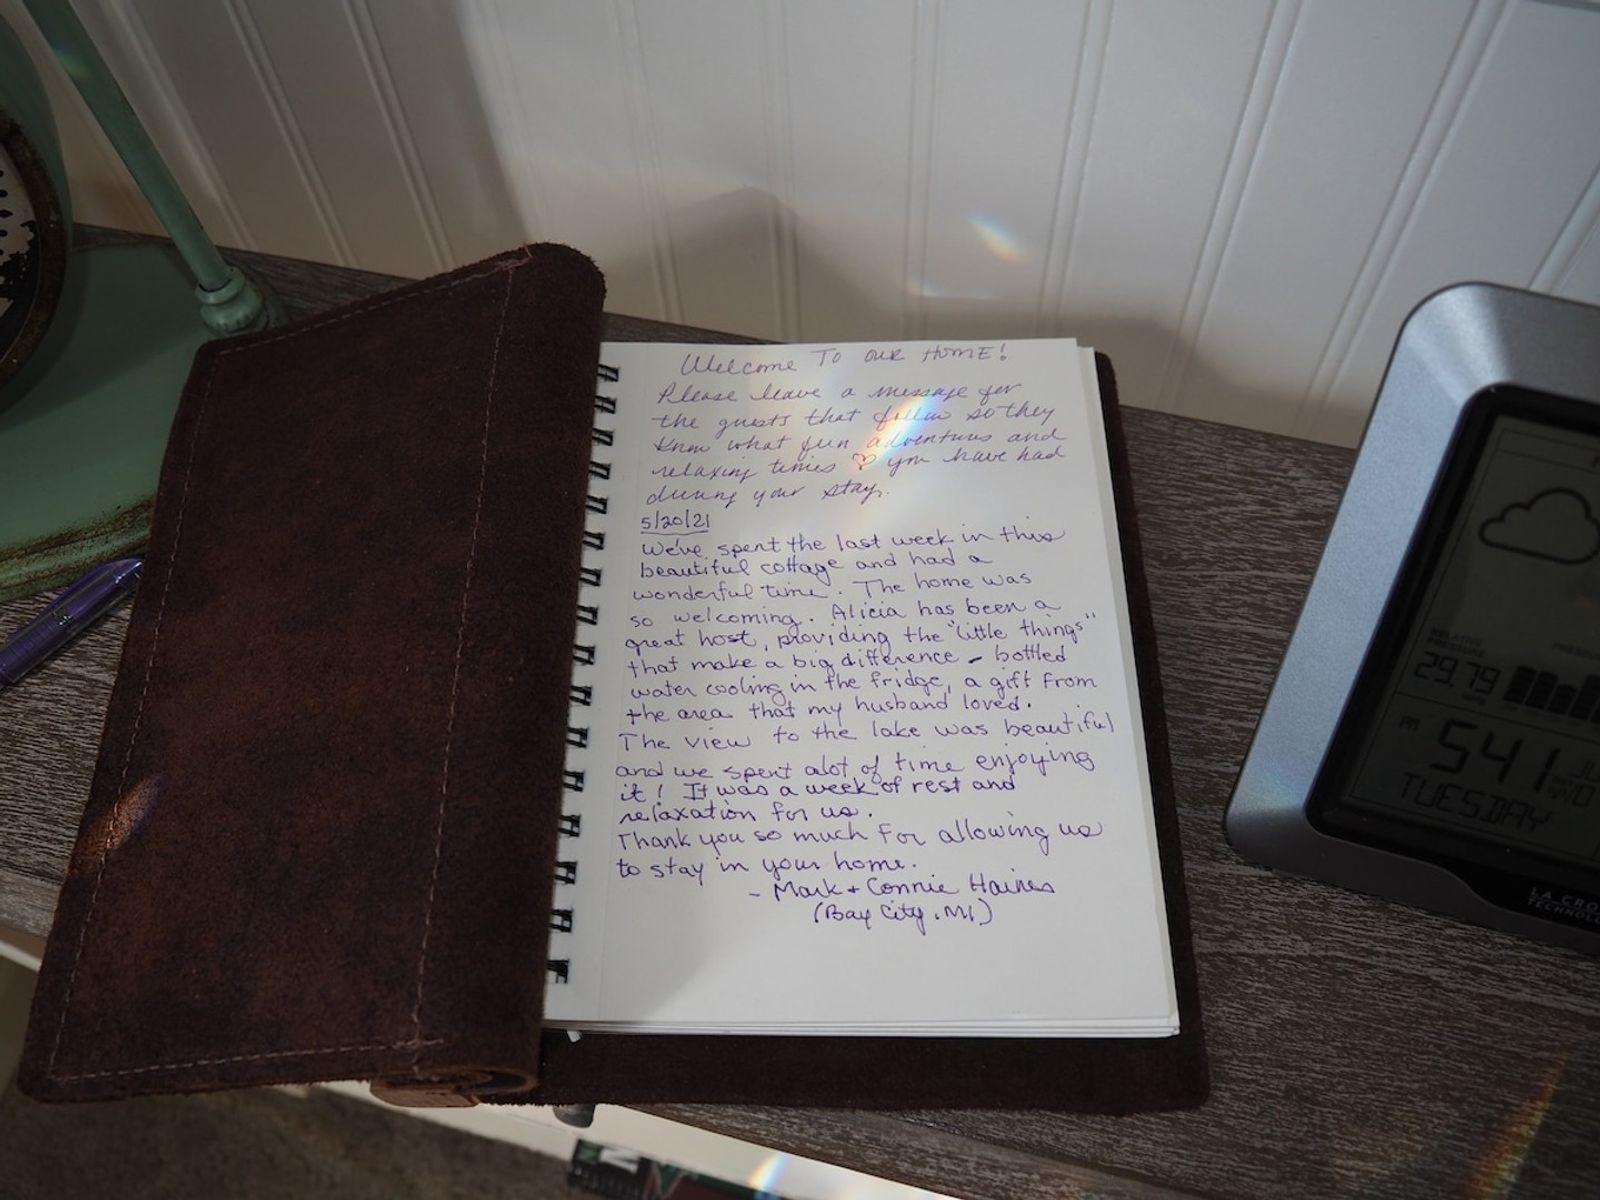 Welcome To our Home!
Please leave a message for
the guests that follow so they
know what fun adventures and
relaxing times ♡ you have had
during your stay.
5/20/21
We've spent the last week in this
beautiful cottage and had a
wonderful time. The home was
so welcoming. Alicia has been a
great host, providing the "little things"
that make a big difference - bottled
water cooling in the fridge, a gift from
the area that my husband loved.
The view to the lake was beautiful
and we spent alot of time enjoying
it! It was a week of rest and
relaxation for us.
Thank you so much for allowing us
to stay in your home.
- Mark + Connie Haines
(Bay City, MI)
RELATIVE
PRESSURE
29.79
PM
5 41
TUESDAY
LA CRO
TECHNOLO
N